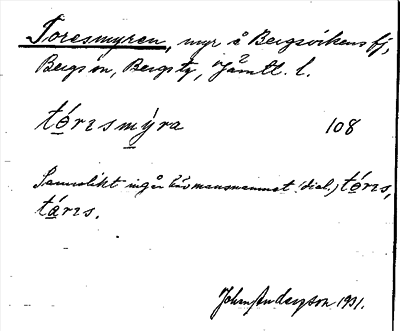 Toresmyren, myr å Bergsvikens fj,
Bergs sn, Bergs tg, Jämtl. l.
tórısmýra 108
Sannolikt ingår häri mansnamnet (dial.) tórıs,
tárıs.
John Anderzson 1931.